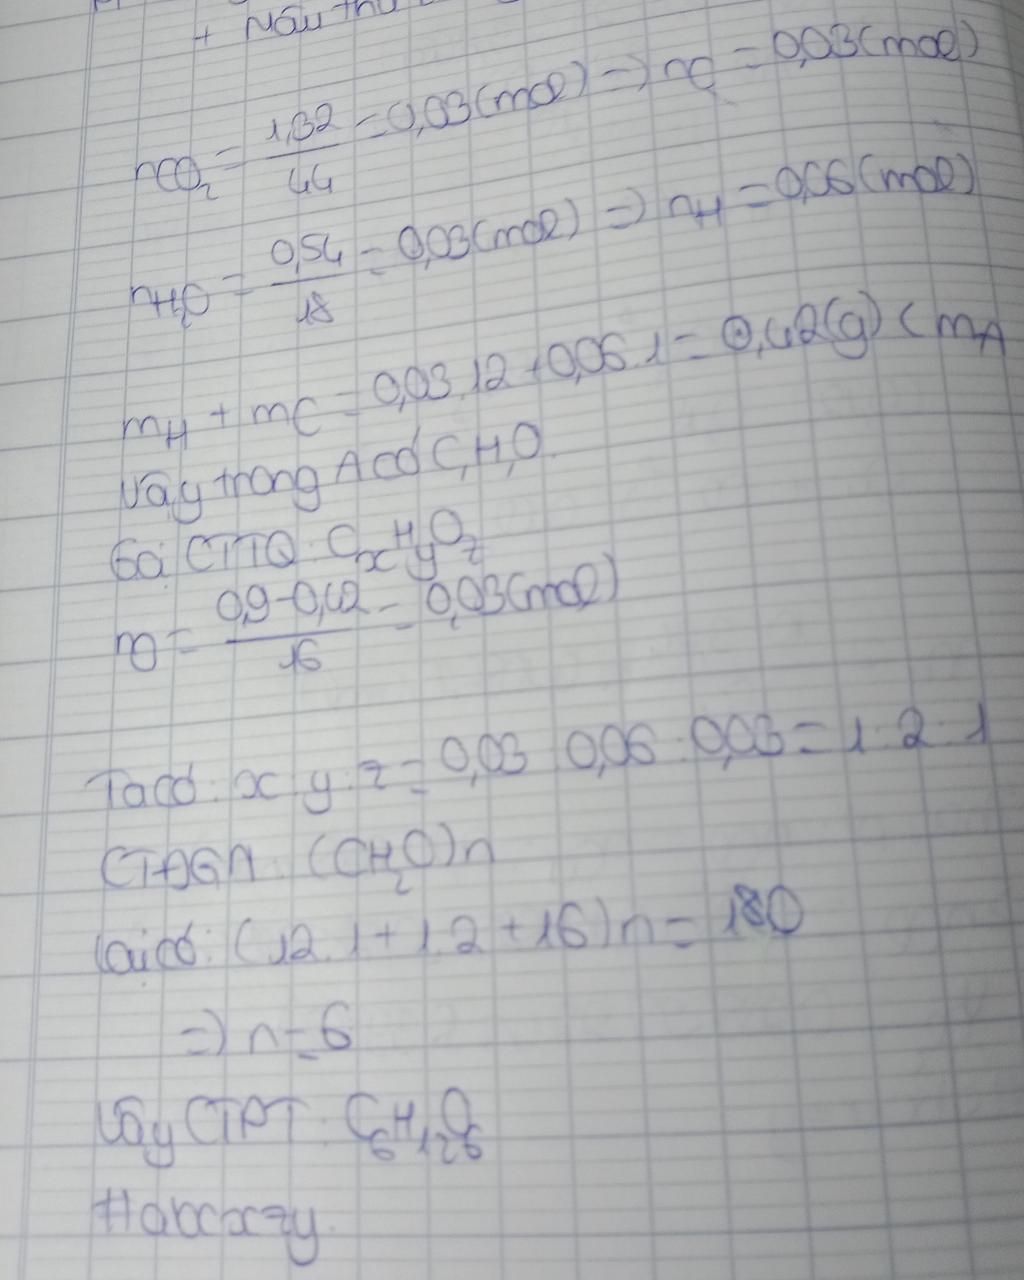 + Mẫu thử
nCO₂ = 1,32/44 = 0,03 (mol) => nC = 0,03 (mol)
nH₂O = 0,54/18 = 0,03 (mol) => nH = 0,06 (mol)
mH + mC = 0,03.12 + 0,06.1 = 0,42 (g) < mA
Vậy trong A có C, H, O.
Gọi CTTQ: CxHyOz
nO = 0,9-0,42/16 = 0,03 (mol)
Ta có: x : y : z = 0,03 : 0,06 : 0,03 = 1 : 2 : 1
CTĐGN: (CH₂O)n
Lại có: (12.1 + 1.2 + 16)n = 180
=> n = 6
Vậy CTPT: C₆H₁₂O₆